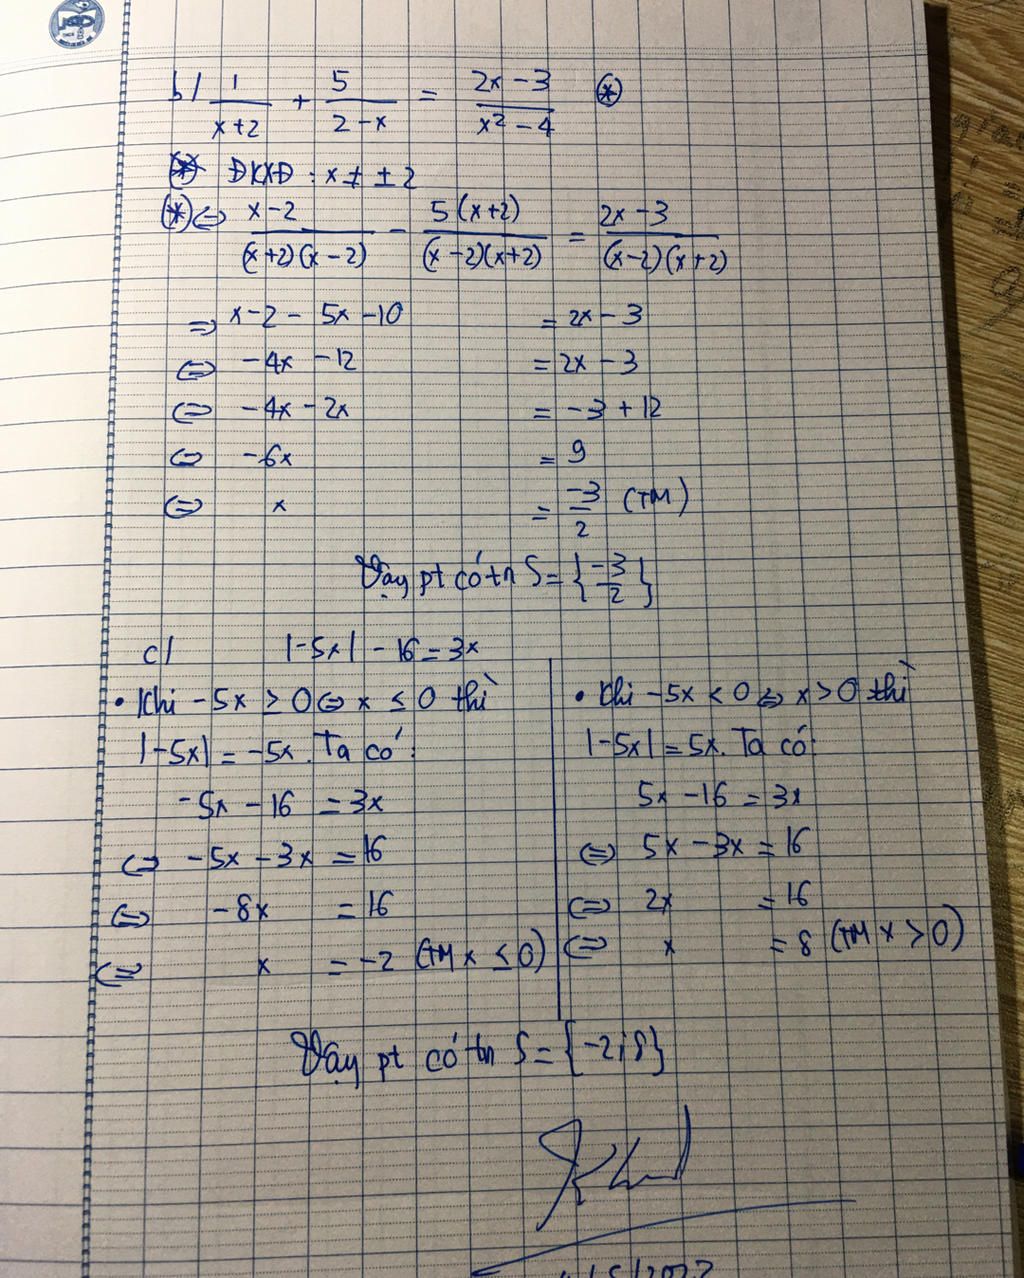 b/ 1/(x+2) + 5/(2-x) = (2x-3)/(x²-4) (*)
(*) ĐKXĐ : x ≠ ± 2
(*) ⇔ (x-2)/((x+2)(x-2)) - 5(x+2)/((x-2)(x+2)) = (2x-3)/((x-2)(x+2))
⇒ x-2 - 5x -10 = 2x - 3
⇔ -4x -12 = 2x - 3
⇔ -4x - 2x = -3 + 12
⇔ -6x = 9
⇔ x = -3/2 (TM)
Vậy pt có tn S = {-3/2}
c/ |-5x| - 16 = 3x
• Khi -5x ≥ 0 ⇔ x ≤ 0 thì
|-5x| = -5x. Ta có:
-5x - 16 = 3x
⇔ -5x - 3x = 16
⇔ -8x = 16
⇔ x = -2 (TM x ≤ 0)
• Khi -5x < 0 ⇔ x > 0 thì
|-5x| = 5x. Ta có:
5x - 16 = 3x
⇔ 5x - 3x = 16
⇔ 2x = 16
⇔ x = 8 (TM x > 0)
Vậy pt có tn S = {-2; 8}